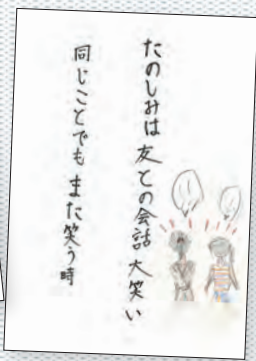 たのしみは 友との会話 大笑い
同じことでも また笑う時